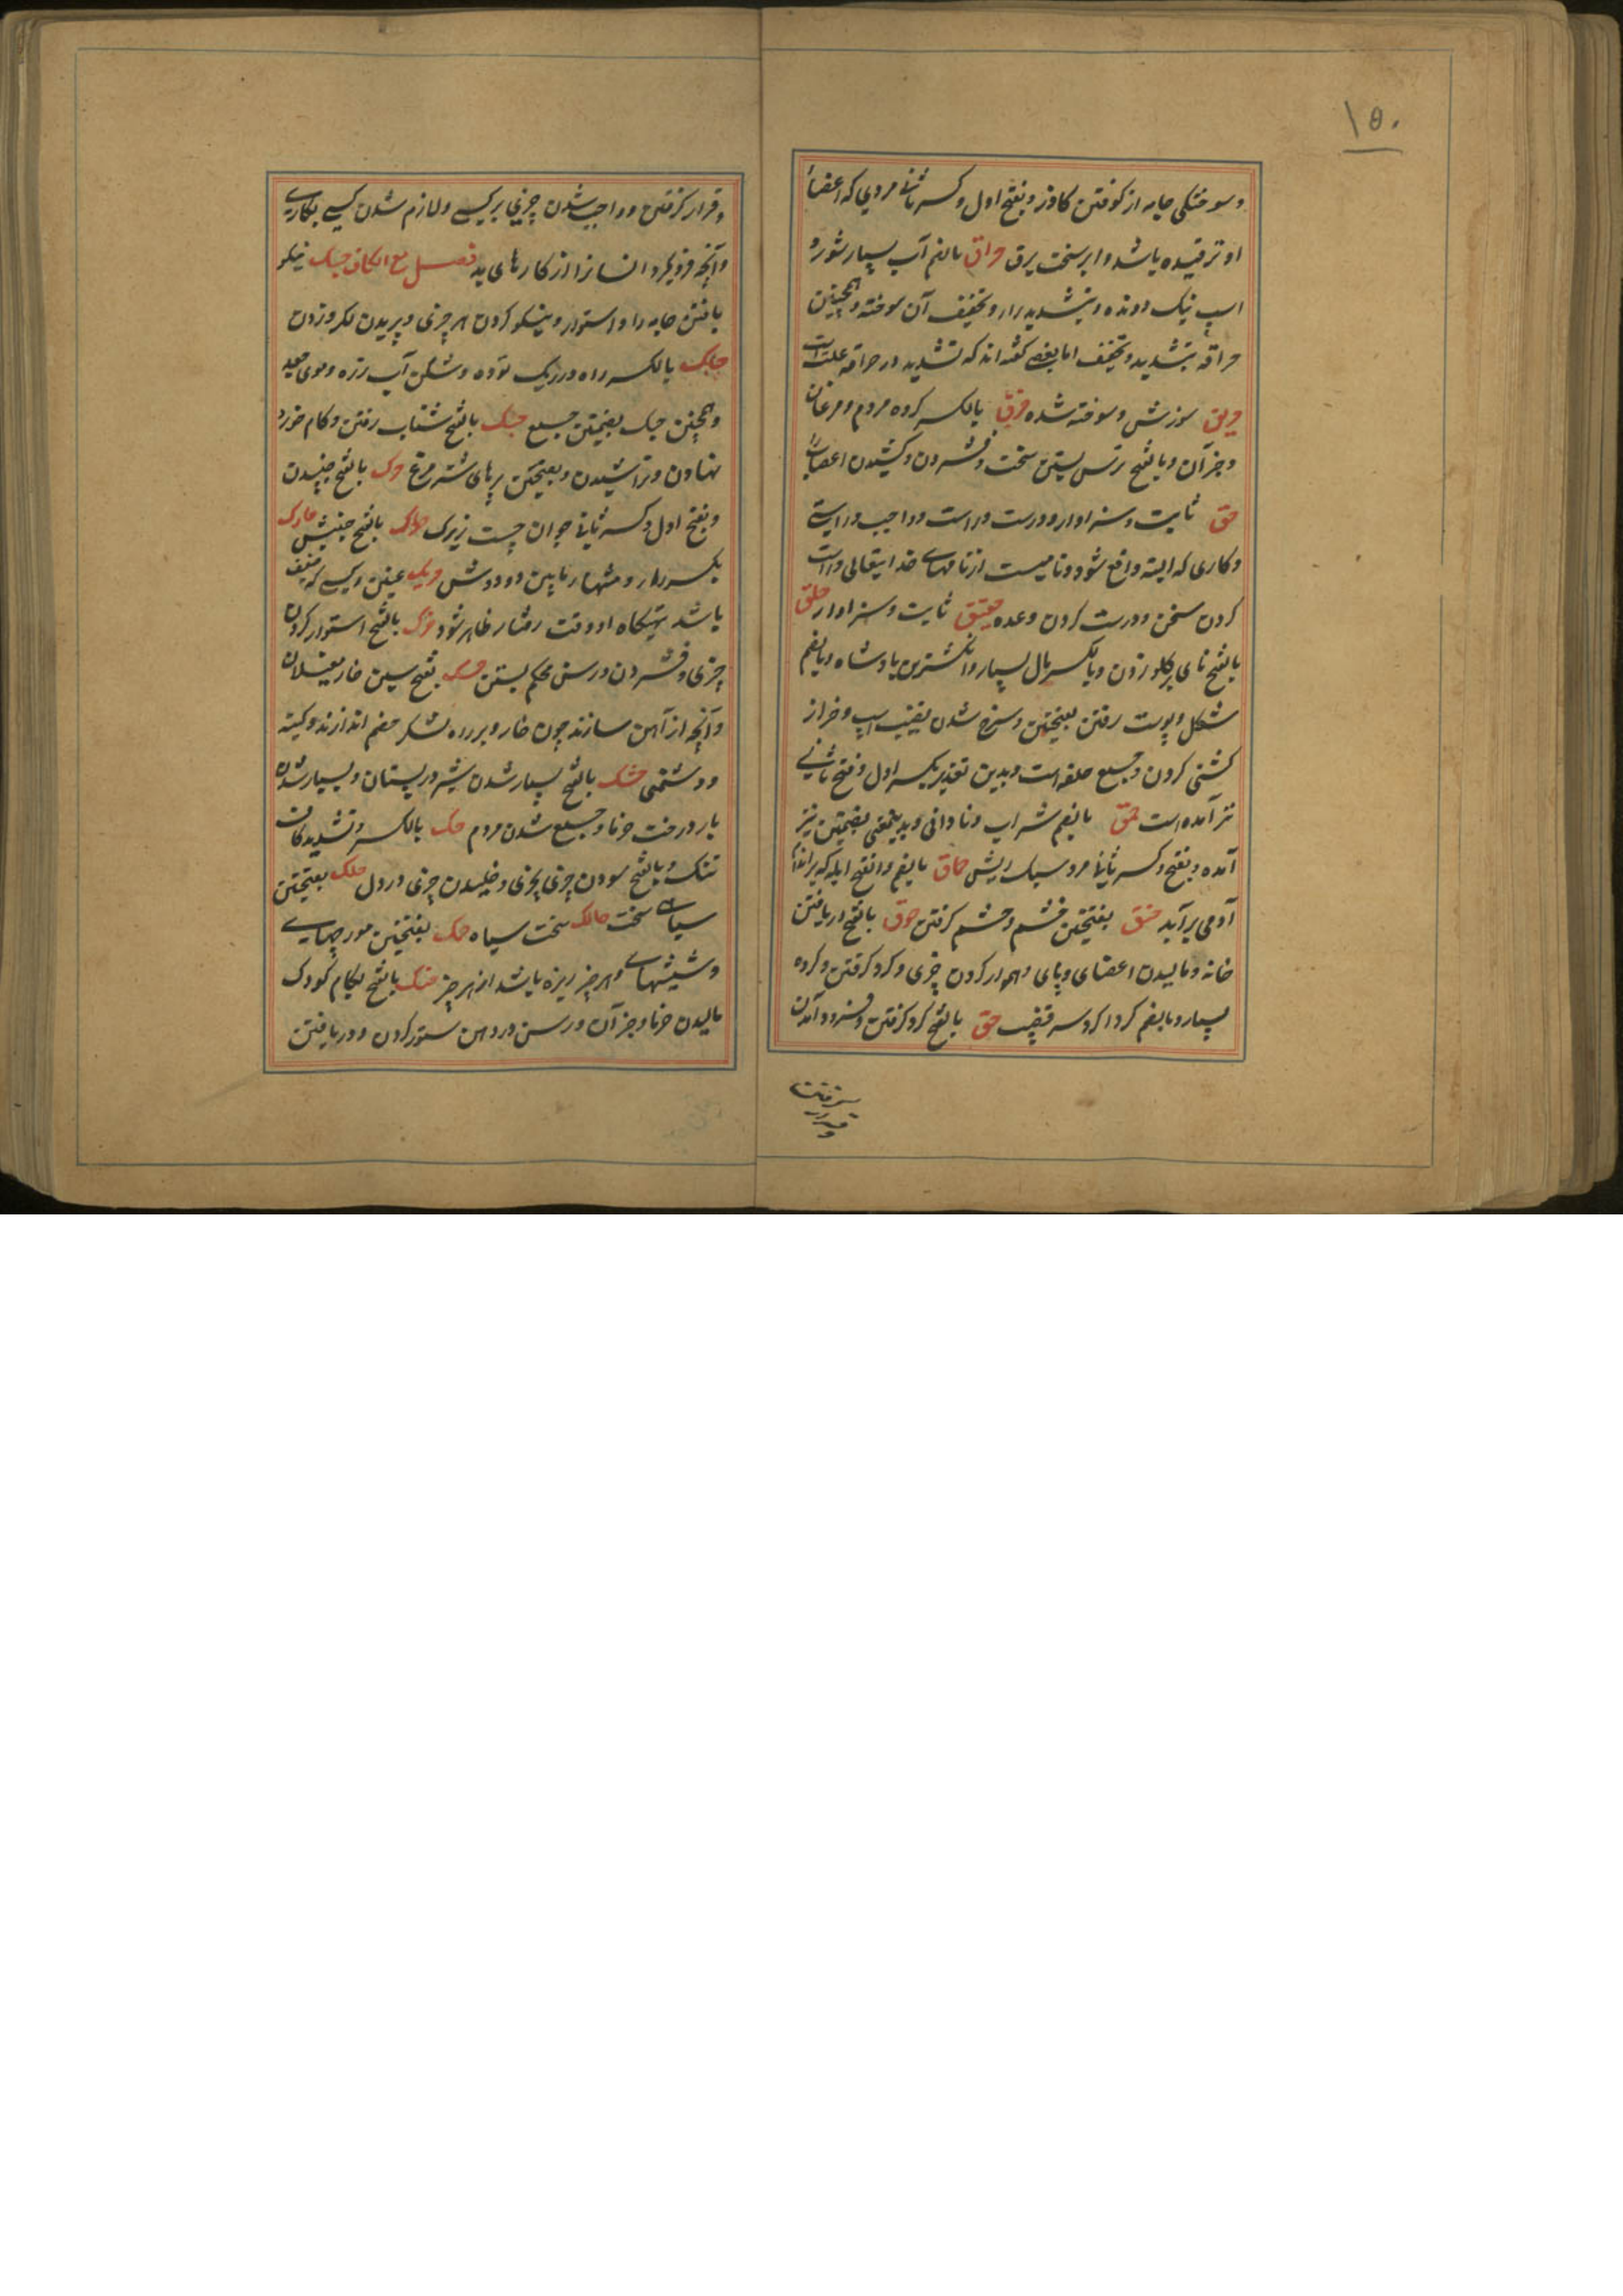 ۱۵۰
و سوختگی جامه از کوفتن کاذر و بفتح اول و کسر ثانی مردی که اعضاء
او ترقیده باشد و ابر سخت برق حراق بالضم آب بسیار شور و
اسپ نیک دونده و بتشدید را و تخفیف آن سوخته و همچنین
حراقه بتشدید و تخفیف اما بعضی گفته اند که تشدید در حراقه غلط است
حریق سوزش و سوخته شده حزق بالکسر گروه مردم و مرغان
و جز آن و بالفتح برتس بستن سخت و فشردن و کشیدن اعصاب را
حق ثابت و سزاوار و درست و راست و واجب و راستی
و کاری که البته واقع شود و نامیست از نامهای خدایتعالی و راست
کردن سخن و درست کردن وعده حقیق ثابت و سزاوار حلق
بالفتح نای گلو زدن و بالکسر مال بسیار و انگشترین پادشاه و بالضم
شکل و پوست رفتن بفتحتین و سرخ شدن قضیب اسپ و خر از
کشنی کردن و جمع حلقه است و بدین تقدیر بکسر اول و فتح ثانی
نیز آمده است حمق بالضم شراب و نادانی و بدینمعنی بضمتین نیز
آمده و بفتح و کسر ثانی مرد سبک ریش حماق بالضم و الفتح ابله که بر اندام
آدمی برآید حنق بفتحتین خشم و خشم گرفتن حوق بالفتح دریافتن
خانه و مالیدن اعضای و پای و هموار کردن چیزی و گرد گرفتن و گروه
بسیار و بالضم گردا گرد سر قضیب حیق بالفتح گرد گرفتن و فرود آمدن
و قرار گرفتن و واجب شدن چیزی بر کسی و لازم شدن کسی بکاری
و آنچه فرو گیرد انسانرا از کارهای بد فصل مع الکاف حبک نیکو
بافتن جامه را و استوار و نیکو کردن هر چیزی و بریدن و کردن زدن
حباک بالکسر راه در ریک توده و شکن آب زره و موی جعد
و همچنین حبک بضمتین جمع حتک بالفتح شتاب رفتن و کام خورد
نهادن و تراشیدن و بفتحتین بر پای شتر مرغ حرک بالفتح جنبیدن
و بفتح اول و کسر ثانی جوان چست زیرک حراک بالفتح جنبش حارک
بکسر را و منتهای میان دو دوش حریک عنین و کسی که ضعیف
باشد تهیگاه او وقت رفتار ظاهر شود حزک بالفتح استوار کردن
چیزی و فشردن و رسن محکم بستن حسک بفتح سین خار مغیلان
و آنچه از آهن سازند چون خار و بر راه لشکر خصم اندازند و کینه
و دشمنی حشک بالفتح بسیار شدن شیر در پستان و بسیار شدن
بار درخت خرما و جمع شدن مردم حک بالکسر و تشدید کاف
تنک و بالفتح سودن چیزی بچیزی و خلیدن چیزی در دل حلک بفتحتین
سیاهی سخت حالک سخت سیاه حمک بفتحتین مورچهای
و شپشهای و هر چیز ریزه باشد از هر چیز حنک بالفتح بکام کودک
مالیدن خرما و جز آن و رسن در دهن ستور کردن و دریافتن